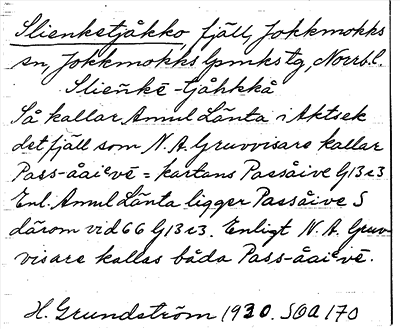 Slienketjåkko, fjäll, Jokkmokks
sn, Jokkmokks lpmkstg, Norrb.l.
Slieńkē-tjåhkkå
Så kallar Amul Länta i Aktsek
det fjäll som N.A. Gruvvisare kallar
Pass-åaiᵉvē = kartans Passåive G13e3
Enl. Amul Länta ligger Passåive S
därom vid 66 G13e3. Enligt N.A. Gruv-
visare kallas båda Pass-åaiᵉvē.
H. Grundström 1930. SOA 170